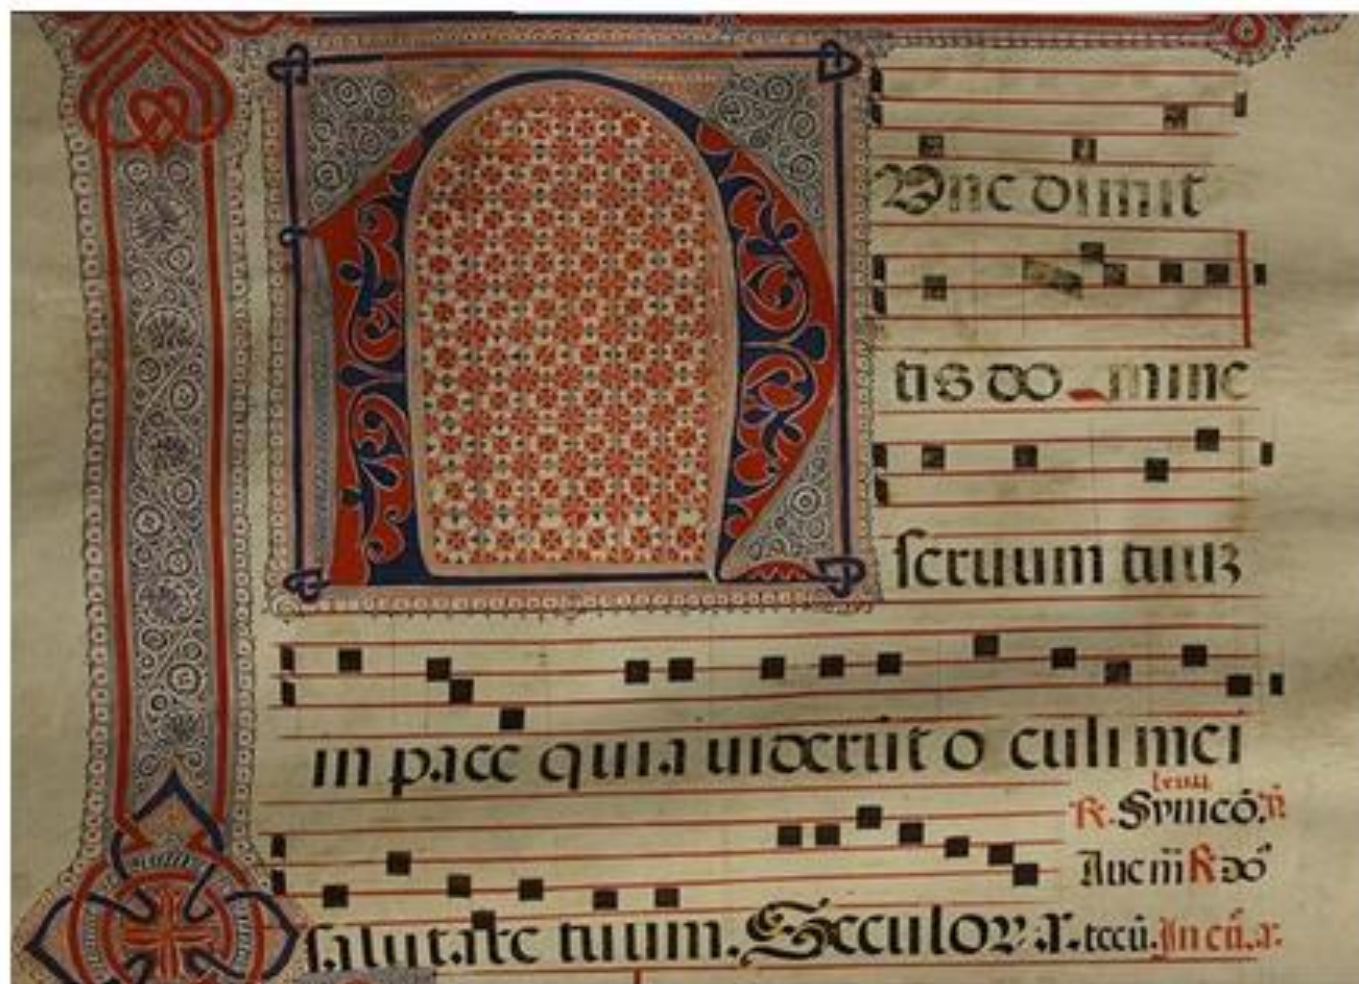 Nunc dimit
tis do mine
seruum tuuz
in pace quia uiderūt o culi mei
R. Symeō.
Aue m̄ R do
salutare tuum. Seculoꝝ a. tecū. In eū. a.